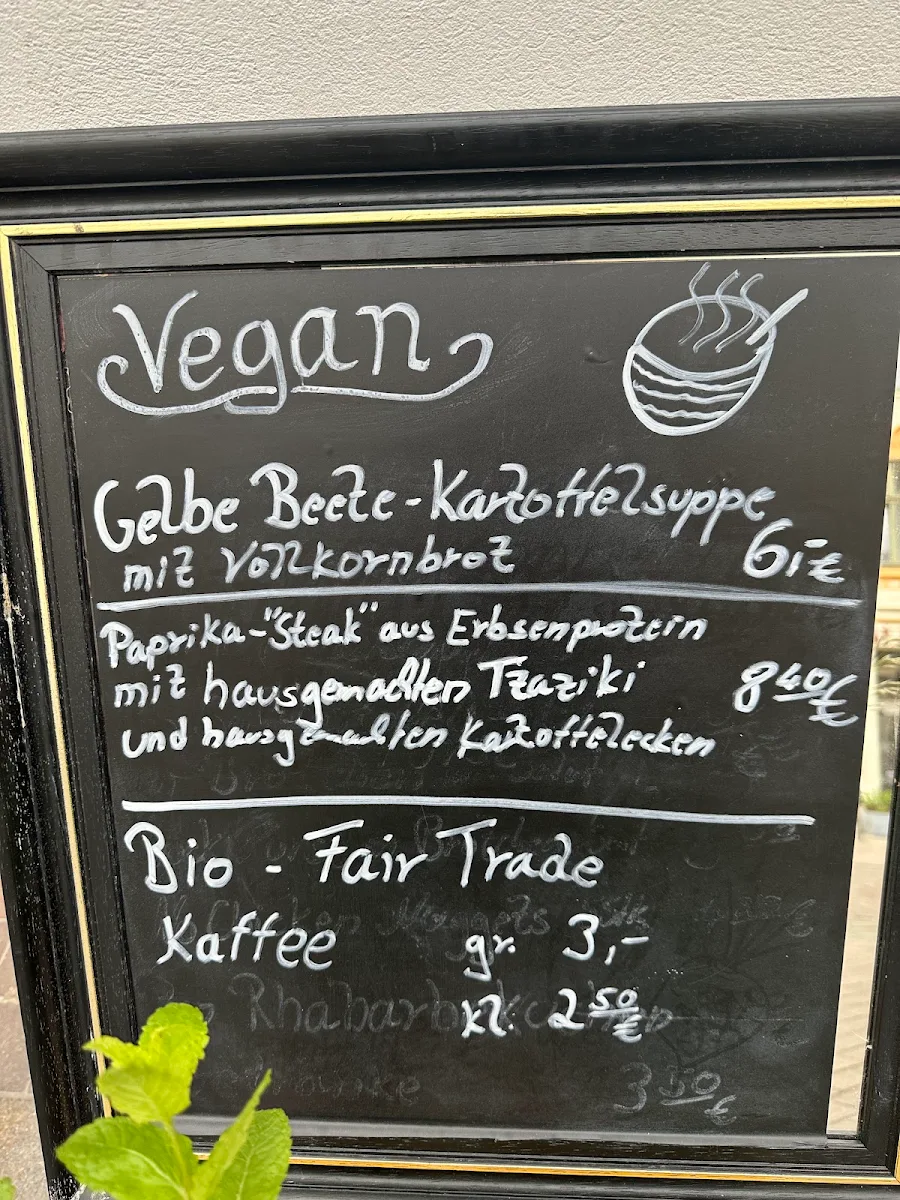 Vegan
Gelbe Beete-Kartoffelsuppe
mit Vollkornbrot 6,-€
Paprika-"Steak" aus Erbsenprotein
mit hausgemachten Tzaziki 8 40/€
und hausgemachten Kartoffelecken
Bio - Fair Trade
Kaffee gr. 3,-
kl. 2 50/€
3 50/€